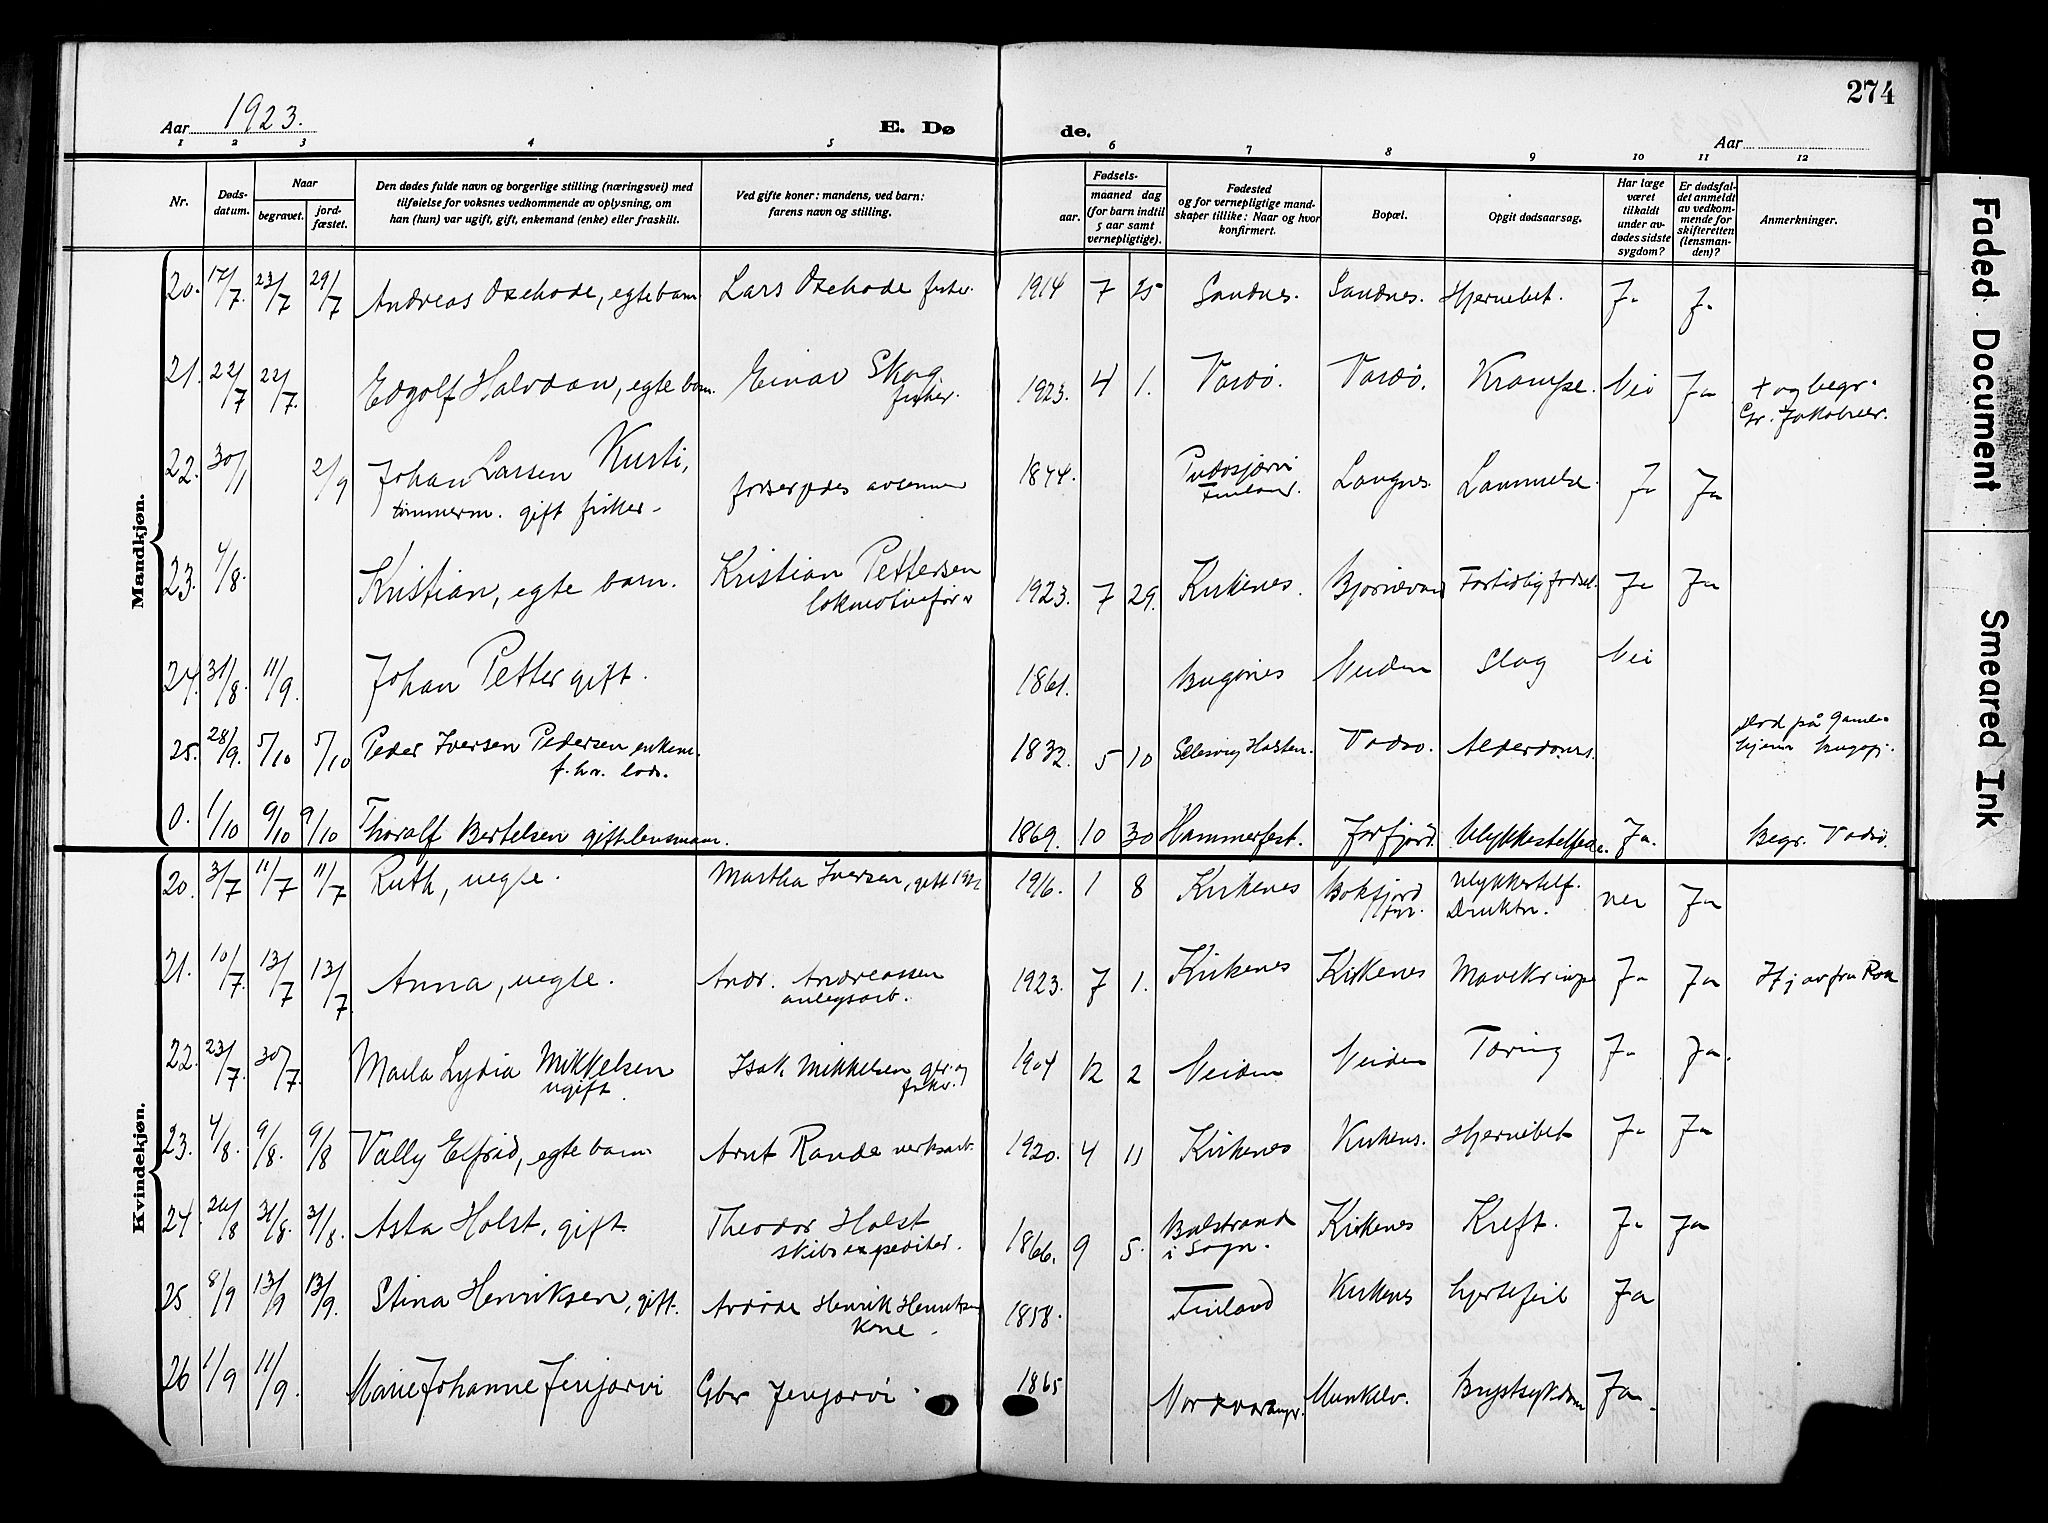 274
Aar 1923.
E. Dø
de.
Aar
1 2 3 4 5 6 7 8 9 10 11 12
Nr.
Døds-
datum.
Naar
begravet.
jord-
fæstet.
Den dødes fulde navn og borgerlige stilling (næringsvei) med
tilføielse for voksnes vedkommende av oplysning, om
han (hun) var ugift, gift, enkemand (enke) eller fraskilt.
Ved gifte koner: mandens, ved barn:
farens navn og stilling.
Fødsels-
aar.
maaned dag
(for barn indtil
5 aar samt
vernepligtige).
Fødested
og for vernepligtige mand-
skaper tillike: Naar og hvor
konfirmert.
Bopæl.
Opgit dødsaarsag.
Har læge
været
tilkaldt
under av-
dødes sidste
sygdom?
Er dødsfal-
det anmeldt
av vedkom-
mende for
skifteretten
(lensman-
den)?
Anmerkninger.
Mandkjøn.
20. 17/7. 23/7 29/7 Andreas Oxehode, egte barn Lars Oxehode fisker. 1914 7 25 Sandnes. Sandnes. Hjernebet. Ja Ja
21. 22/7 22/7. Edgolf Halvdan, egte barn. Einar Skog
fisker. 1923. 4 1. Vardø. Vardø. Krampe. Nei Ja + og begr.
Gr. Jakobselv.
22. 30/1 2/9 Johan Larsen Kusti,
tømmerm. gift fisker. 1844. Pudosjærvi
Finland. Langnes. Lammelse. Ja Ja
23. 4/8. Kristian, egte barn. Kristian Pettersen
lokmotivfører 1923. 7 29. Kirkenes. Bjørnevand Fortidlig fødsel. Ja Ja
24. 31/8. 11/9. Johan Petter gift. 1861. Bugønes Neiden Slag Nei
25. 28/9. 5/10 5/10 Peder Iversen Pedersen enkem.
f. hv. lods. 1832 5 10 Slesvig Holsten. Vadsø. Alderdoms. død på Gamle-
hjem Bugøfj.
0. 1/10 9/10 9/10 Thoralf Bertelsen gift lensmann. 1869. 10 30 Hammerfest. Jarfjord. Ulykkestilfelde. Ja. Begr. Vadsø.
Kvindekjøn.
20. 3/7 11/7 11/7 Ruth, uegte. Martha Iversen, gift 1921 1916. 1 8 Kirkenes Bokfjord
fyr. Ulykkestilf.
Drukn. nei Ja
21. 10/7. 13/7 13/7. Anna, uegte. Andr. Andreassen
anlegsarb. 1923. 7 1. Kirkenes Kirkenes Mavekrampe Ja Ja Hj av fru Roa
22. 23/7. 30/7. Marla Lydia Mikkelsen
ugift Isak Mikkelsen gbr. og
fisker. 1904 12 2 Neiden Neiden Tæring Ja Ja.
23. 4/8. 9/8. 9/8 Vally Elfrid, egte barn. Arnt Rande verksarb. 1920. 4 11 Kirkenes Kirkenes. Hjernebet Ja Ja
24. 26/8 31/8. 31/8. Asta Holst, gift Theodor Holst
skibsexpeditør. 1866. 9 5. Balstrand
i Sogn. Kirkenes Kreft. Ja Ja
25 8/9 13/9 13/9. Stina Henriksen, gift. Avdøde Henrik Henriksen
Kone. 1858. Finland Kirkenes hjertefeil Ja
26 1/9 11/9. Marie Johanne Jenjarvi Gbr Jenjarvi. 1865 Nordvaranger. Munkelv. Brystsykdom Ja.
Faded Document
Smeared Ink